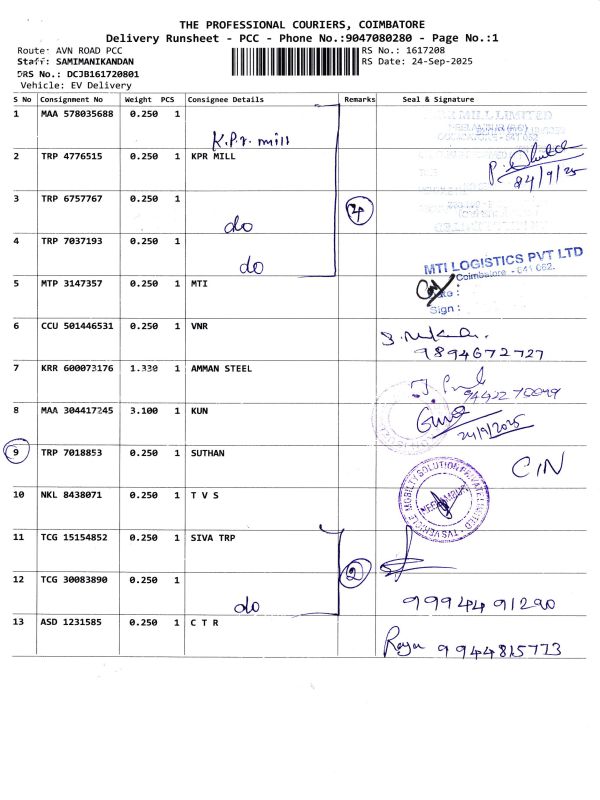 THE PROFESSIONAL COURIERS, COIMBATORE
Delivery Runsheet - PCC - Phone No.:9047080280 - Page No.:1
Route: AVN ROAD PCC
RS No.: 1617208
Staff: SAMIMANIKANDAN
RS Date: 24-Sep-2025
DRS No.: DCJB161720801
Vehicle: EV Delivery
S No Consignment No Weight PCS Consignee Details Remarks Seal & Signature
1 MAA 578035688 0.250 1 K.P.r. mill
2 TRP 4776515 0.250 1 KPR MILL 24/9/25
3 TRP 6757767 0.250 1 do 4
4 TRP 7037193 0.250 1 do
MTI LOGISTICS PVT LTD
Coimbatore - 641 062.
5 MTP 3147357 0.250 1 MTI
Sign :
6 CCU 501446531 0.250 1 VNR
9894672727
7 KRR 600073176 1.330 1 AMMAN STEEL
8 MAA 304417245 3.100 1 KUN
24/9/2025
9 TRP 7018853 0.250 1 SUTHAN C/N
10 NKL 8438071 0.250 1 T V S
TVS VEHICLE MOBILITY SOLUTION PRIVATE LIMITED
11 TCG 15154852 0.250 1 SIVA TRP
12 TCG 30083890 0.250 1 do 2
9994491290
13 ASD 1231585 0.250 1 C T R
Raja 9944815773